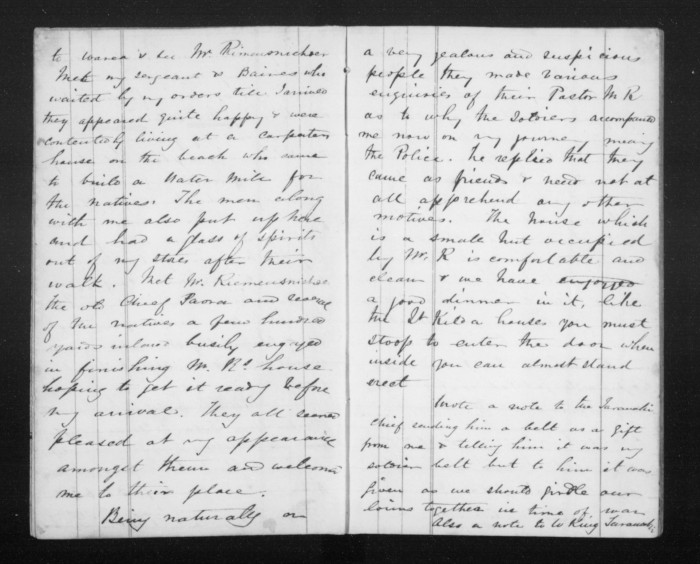 to Warea & see Mr Riemenschneider
Met my sergeant & Baines who
waited by my orders till I arrived
they appeared quite happy & were
contentedly living at a carpenters
house on the beach who came
to build a Water Mill for
the natives. The men along
with me also put up here
and had a glass of spirits
out of my stores after their
walk. Met Mr. Riemenschneider
the old Chief Paora and several
of the natives a few hundred
yards inland busily engaged
in finishing Mr. Rs. house
hoping to get it ready before
my arrival. They all seemed
pleased at my appearance
amongst them and welcomed
me to their place.
Being naturally on
a very zealous and suspicious
people they made various
enquiries of their Pastor Mr R
as to why the Soldiers accompanied
me now on my journey, meaning
the Police. he replied that they
came as friends & need not at
all apprehend any other
motives. The house which
is a small hut occupied
by Mr. R is comfortable and
clean & we have enjoyed
a good dinner in it, like
the St Kilda houses you must
stoop to enter the door when
inside you can almost stand
erect
Wrote a note to the Taranaki
chief sending him a belt as a gift
from me & telling him it was my
soldier belt but to him it was
given as we should girdle our
loins together in time of war
Also a note to W King Taranaki